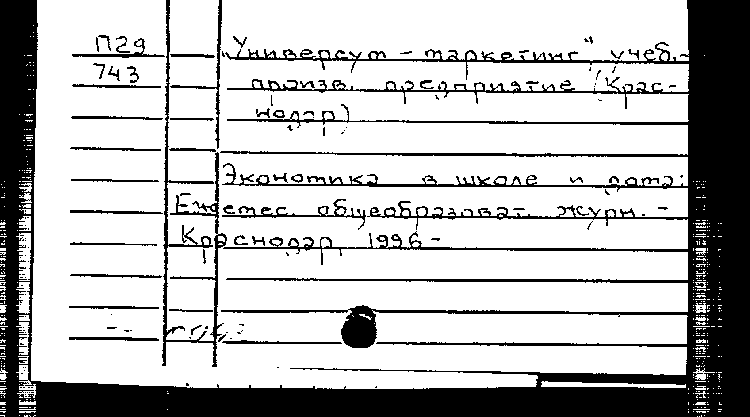 П29 „Универсум – маркетинг“ учеб.-
743 произв. предприятие (Крас-
нодар)
Экономика в школе и дома:
Ежемес. общеобразоват. журн. –
Краснодар, 1996 –